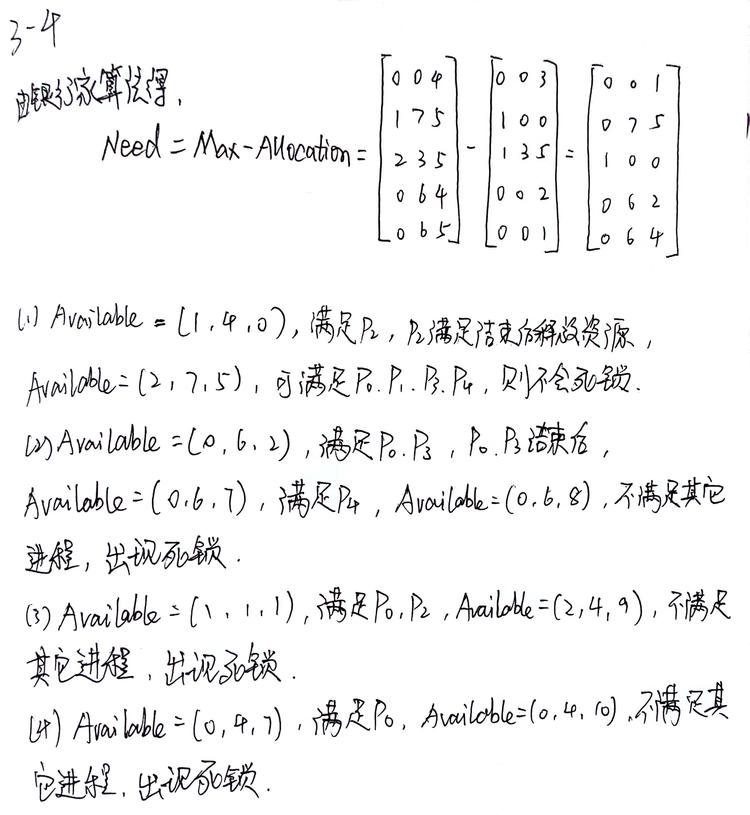 3-4
由银行家算法得,
Need = Max-Allocation = [0 0 4; 1 7 5; 2 3 5; 0 6 4; 0 6 5] - [0 0 3; 1 0 0; 1 3 5; 0 0 2; 0 0 1] = [0 0 1; 0 7 5; 1 0 0; 0 6 2; 0 6 4]
(1) Available = (1,4,0), 满足P2, P2满足结束后释放资源,
Available=(2,7,5), 可满足P0.P1.P3.P4, 则不会死锁.
(2) Available =(0,6,2), 满足P0.P3, P0.P3结束后,
Available=(0.6,7), 满足P4, Available=(0,6,8), 不满足其它
进程, 出现死锁.
(3) Available=(1,1,1), 满足P0,P2, Available=(2,4,9), 不满足
其它进程, 出现死锁.
(4) Available=(0,4,7), 满足P0, Available=(0,4,10), 不满足其
它进程, 出现死锁.